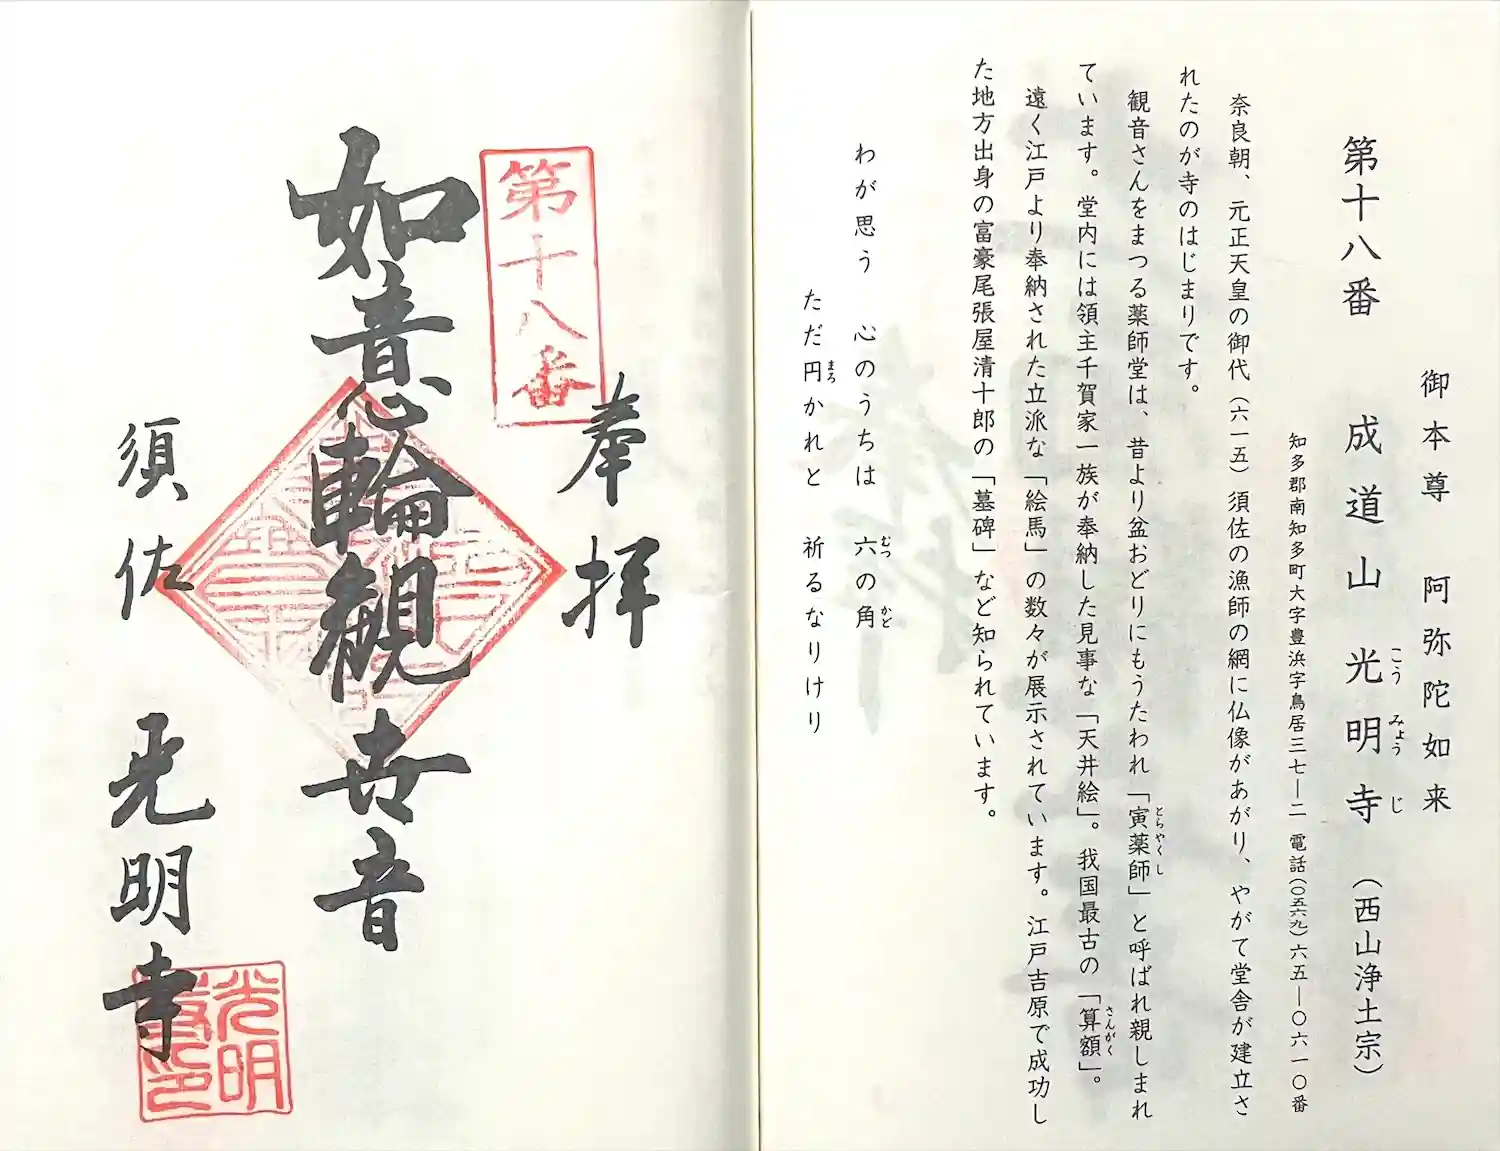 御本尊 阿弥陀如来
第十八番 成道山 光明寺 (西山浄土宗)
こう みょう じ
知多郡南知多町大字豊浜字鳥居三七―二 電話(〇五六九)六五―〇六一〇番
奈良朝、元正天皇の御代(六一五)須佐の漁師の網に仏像があがり、やがて堂舎が建立さ
れたのが寺のはじまりです。
観音さんをまつる薬師堂は、昔より盆おどりにもうたわれ「寅薬師」と呼ばれ親しまれ
とらやくし
ています。堂内には領主千賀家一族が奉納した見事な「天井絵」。我国最古の「算額」。
さんがく
遠く江戸より奉納された立派な「絵馬」の数々が展示されています。江戸吉原で成功し
た地方出身の富豪尾張屋清十郎の「墓碑」など知られています。
わが思う 心のうちは 六の角
むつ かど
ただ円かれと 祈るなりけり
まろ
第十八番
奉拝
如意輪観世音
須佐 光明寺
光明
寺印